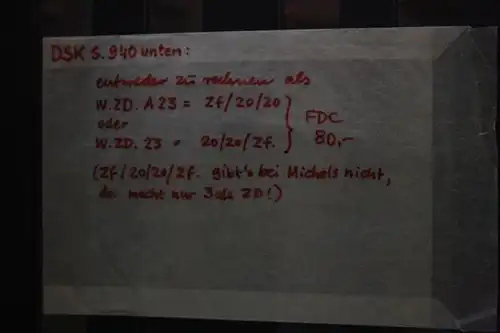 DSK S. 940 unten:
entweder zu rechnen als
W. ZD. A 23 = Zf/20/20
oder
W. ZD. 23 = 20/20/Zf.
FDC
80,-
(Zf/20/20/Zf. gibt's bei Michels nicht,
da macht nur 3als ZD!)